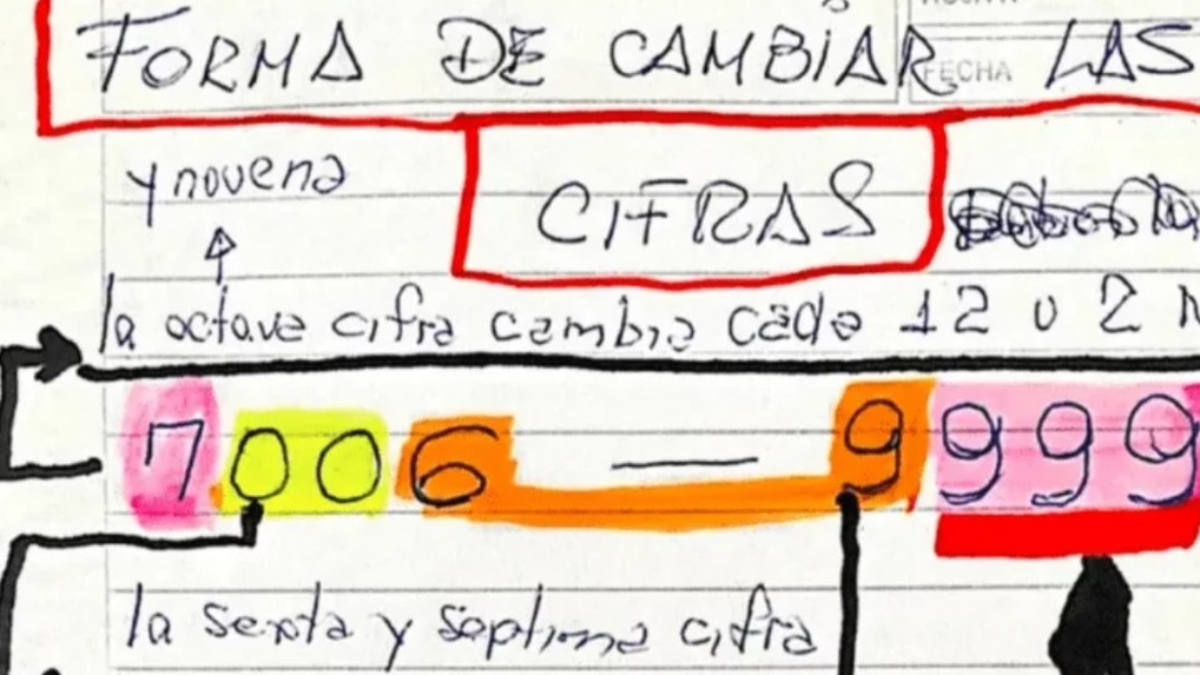 FORMA DE CAMBIAR LAS
FECHA
y novena
CIFRAS
la octava cifra cambia cada 12 o 2
7 0 0 6 — 9 9 9 9
la sexta y septima cifra